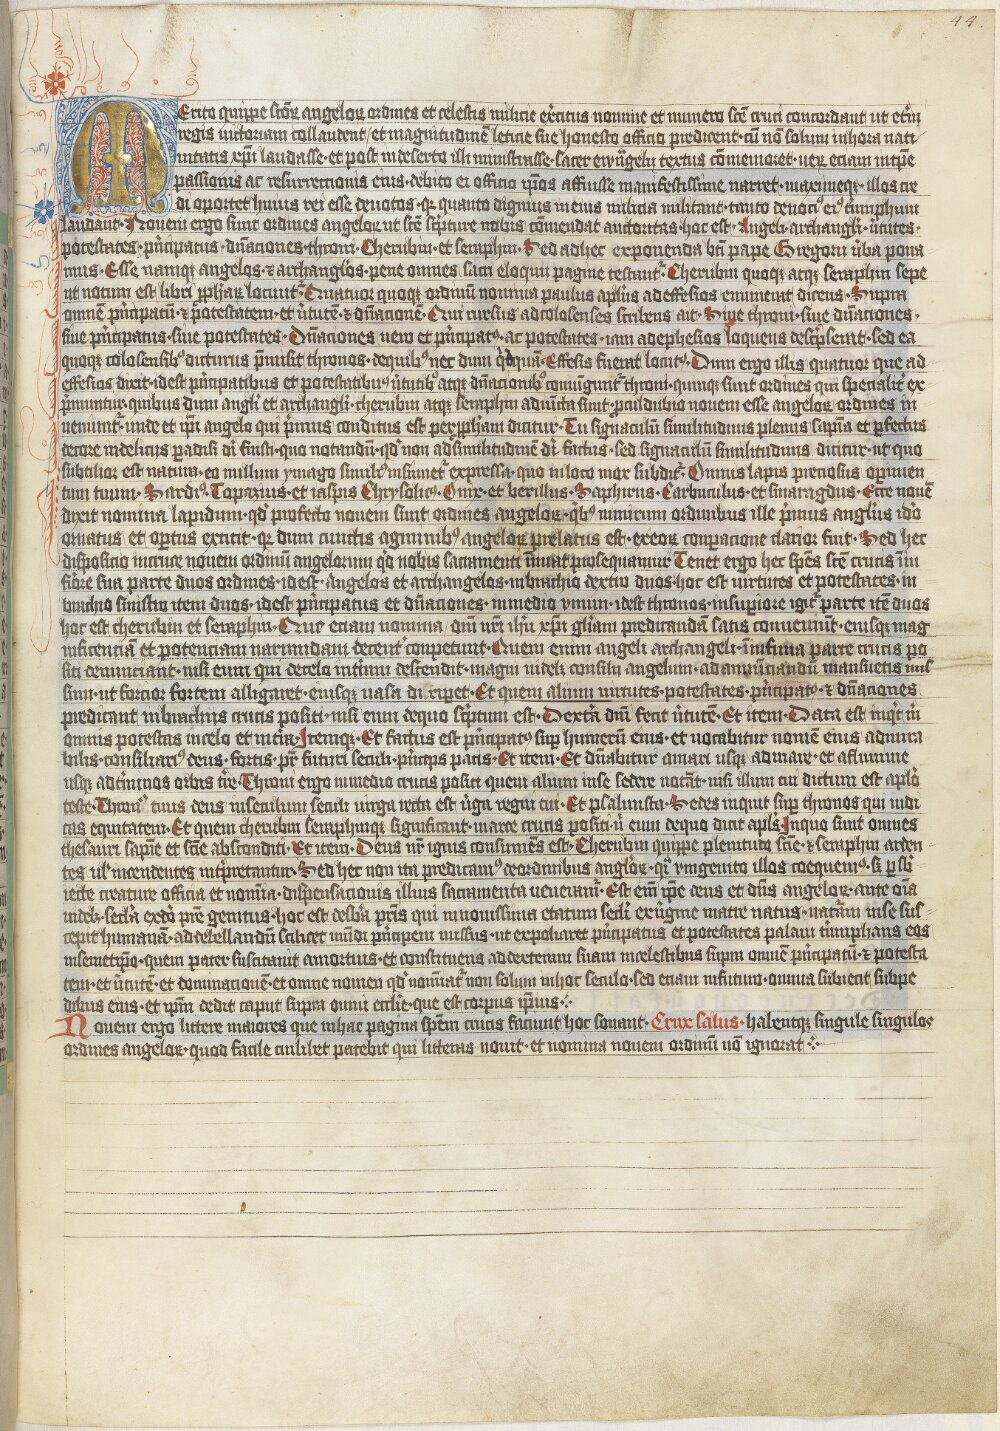 44.
Merito quippe sc̄oꝝ angeloꝝ ordines et celestis milicie exˀcitus nomine et numero sc̄e cruci concordant ut etˀni
regis uictoriam collaudent / et magnitudinē leticie sue honesto officio predicent · cū nō solum in hora nati
uitatis xp̄i laudasse · et post in deserto illi ministrasse · sacer ewāgelii textus cōmemoret · ueꝝ eciam in tp̄e
passionis ac resurrectionis eius · debito ei officio ip̄os affuisse manifestissime narret · maximeqꝫ · illos cre
di oportet huius rei esse deuotos · qꝛ quanto dignius in eius milicia militant · tanto deuociꝰ eiꝰ tiumphum
laudant · Nouem ergo sunt ordines angeloꝝ ut sc̄e scˀpture nobis cōmendat auctoritas · hoc est · Angeli · archangli · uˀtutes ·
potestates · pˀncipatus · dn̄aciones · throni · Cherubin · et seraphin · Sed ad hec exponenda bt̄i pape Gregorii uˀba pona
mus · Esse namqꝫ angelos · ⁊ archangl̄os · pene omnes sacri eloquii pagine testantˀ · Cherubin quoqꝫ atqꝫ seraphin sepe
ut notum est libri pp̄haꝝ locuntˀ · Quatuor quoqꝫ ordinū nomina paulus apl̄us ad effesios enumerat dicens · Supra
omnē pˀncipatū · ⁊ potestatem · et uˀtutē · ⁊ dn̄acionē · Qui rursus ad colosenses scribens ait · Siue throni · siue dn̄aciones ·
siue pˀncipatus · siue potestates · Dn̄aciones uero et pˀncipatꝰ · ac potestates · iam ad ephesios loquens descˀpserat · sed ea
quoqꝫ colosensibꝰ dicturus pˀmisit thronos · de quibꝰ nec dum quˀquā · Effesiis fuerat locutꝰ · Dum ergo illis quatuor que ad
effesios dixit · id est pˀncipatibus et potestatibꝰ uˀtutibꝰ atqꝫ dn̄acionibꝰ coniūguntˀ throni · quinqꝫ sunt ordines qui specialitˀ ex
pˀmuntur · quibus dum angli et archangli · cherubin atqꝫ seraphin adiuncta sunt · pculdubio nouem esse angeloꝝ ordines in
ueniuntˀ · unde et ip̄i angelo qui pˀmus conditus est per pp̄ham dicitur · Tu signaculū similitudinis plenus sapn̄a et pfectus
decore in deliciis paradisi dˀi fuisti · quo notandū · qd̄ non ad similitudinē dˀi factus · sed signaculū similitudinis dicitur · ut quo
subtilior est natura · eo in illum ymago similˀ insinuetˀ expressa · quo in loco mox subditˀ · Omnis lapis preciosus opimen
tum tuum · Sardiꝰ · Topazius · et iaspis Chrysolitꝰ · Onix · et berillus · Saphirus · Carbuculus · et smaragdus · Ecce nouē
dixit nomina lapidum · qd̄ profecto nouem sunt ordines angeloꝝ · qˀbꝰ nimirum ordinibus ille pˀmus anglˀus ido
ornatus et optus extitit · qꝛ dum cunctis agminibꝰ angeloꝝ prelatus est · ex eoꝝ conparacione clarior fuit · Sed hec
disposicio in cruce nouem ordinū angelorum qd̄ nobis sacramenti innuat prosequamur · Tenet ergo hec spēs sc̄e crucis in in
fiore sua parte duos ordines · id est · angelos et archangelos · in brachio dextro duos · hoc est uirtutes et potestates · in
brachio sinistro item duos · id est pˀncipatus et dn̄aciones · in medio vnum · id est thronos · in supiore igitˀ parte itē duos
hoc est cherubin et seraphin · Que eciam nomina / dn̄i nr̄i ih̄u xp̄i glˀiam predicandā satis conueniunt · eiusqꝫ mag
nificenciā et potenciam narrandam decentˀ conpetunt · Quem enim angeli archangeli · in infima parte crucis po
siti denunciant · nisi eum qui de celo in imū descendit · magni uidelˀ consilii angelum · ad annūciandū mansuetis mis
sum · ut fortior fortem alligaret · eiusqꝫ uasa diripet · Et quem alium uirtutes · potestates · pˀncipatꝰ · ⁊ dn̄aciones
predicant in brachiis crucis positi · nisi eum de quo scˀptum est · Dextˀa dn̄i fecit uˀtutē · Et item · Data est inqˀt m̄
omnis potestas in celo et in tˀra · Itemqꝫ · Et factus est pˀncipatꝰ sup humerū eius · et uocabitur nomē eius admira
bilis · consiliariꝰ deus · fortis · pr̄ futuri seculi · pˀnceps pacis · Et item · Et dn̄abitur a mari usqꝫ ad mare · et a flumine
usqꝫ ad tˀminos orbis tˀre · Throni ergo in medio crucis positi quem alium in se sedere notāt · nisi illum cui dictum est aplo
teste · Thronꝰ tuus deus in seculum seculi uirga recta est uˀga regni tui · Et psalmista · Sedes inquit sup thronos qui iudi
cas equitatem · Et quem cherubin seraphinqꝫ significant · in arce crucis positi · nˀ eum de quo dicit apls · In quo sunt omnes
thesauri sapn̄e et scn̄e absconditi · Et item · Deus nr̄ ignis consumēs est · Cherubin quippe plenitudo scn̄e · ⁊ seraphin arden
tes ulˀ incendentes intˀpretantur · Sed hec non ita predicamꝰ de ordinibus angloꝝ · qˀ vnigenito illos coequemꝰ · sꝫ p sub
iecte creature officia et nomina · dispensacionis illius sacramenta ueneramˀ · Est eīm ip̄e deus et dn̄s angeloꝝ · ante oīa
uidelꝫ · secla ex do pre genitus · hoc est de sb̄a pr̄is qui in nouissima etatum secli ex uˀgine matre natus · natˀam in se sus
cepit humanā · ad debellandū scilicet mūdi pˀncipem missus · ut expoliaret pˀncipatus et potestates palam tiumphans eos
in semetip̄o · quem pater suscitauit a mortuis · et constituens ad dexteram suam in celestibus supra omnē pˀncipatū · ⁊ potesta
tem · et uˀtutē · et dominacionē · et omne nomen qd̄ nominatˀ non solum in hoc seculo · sed eciam in futuro · omnia subiecit sub pe
dibus eius · et ip̄m dedit caput supra omni ecclˀie · que est corpus ip̄ius ·
Nouem ergo littere maiores que in hac pagina spēm crucis faciunt hoc sonant · Crux salus · habentqꝫ singule singulos
ordines angeloꝝ · quod facile cuilibet patebit qui litteras nouit · et nomina nouem ordinū nō ignorat ·